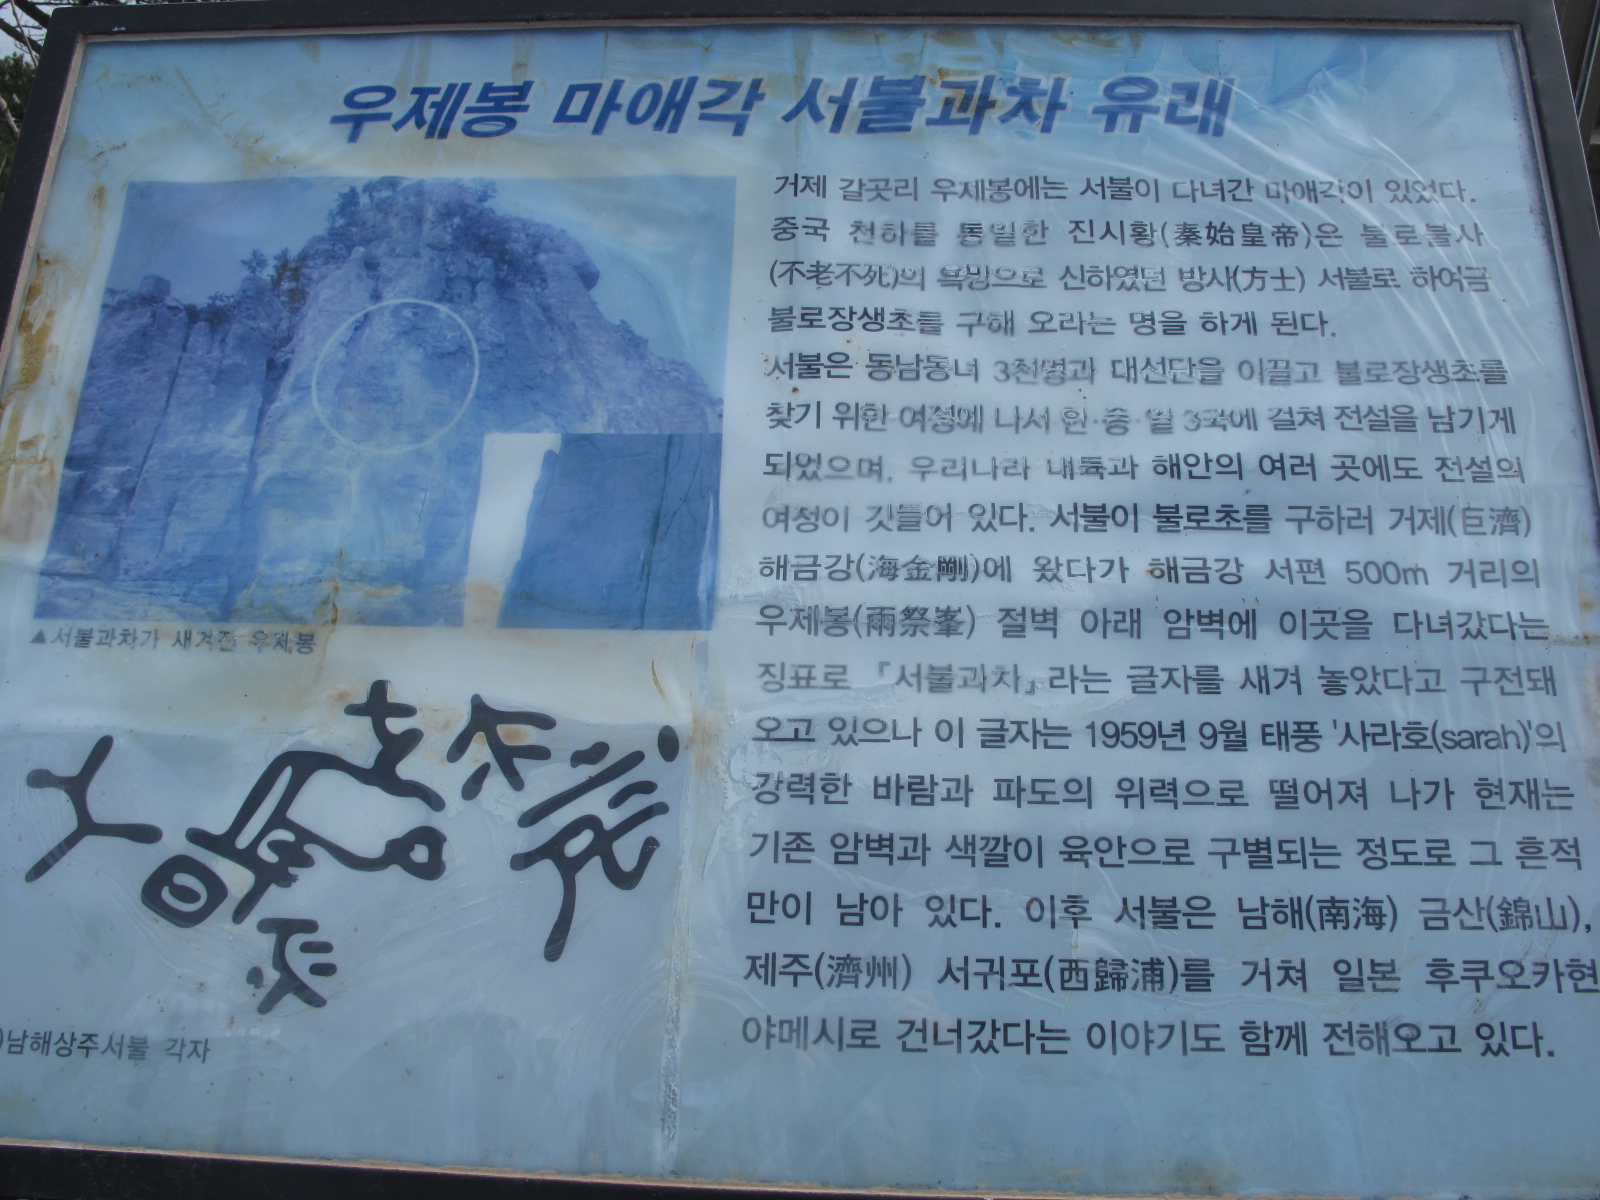 우제봉 마애각 서불과차 유래
거제 갈곶리 우제봉에는 서불이 다녀간 마애각이 있었다.
중국 천하를 통일한 진시황(秦始皇帝)은 불로불사
(不老不死)의 욕망으로 신하였던 방사(方士) 서불로 하여금
불로장생초를 구해 오라는 명을 하게 된다.
서불은 동남동녀 3천명과 대선단을 이끌고 불로장생초를
찾기 위한 여정에 나서 한·중·일 3국에 걸쳐 전설을 남기게
되었으며, 우리나라 내륙과 해안의 여러 곳에도 전설의
여정이 깃들어 있다. 서불이 불로초를 구하러 거제(巨濟)
해금강(海金剛)에 왔다가 해금강 서편 500m 거리의
우제봉(雨祭峯) 절벽 아래 암벽에 이곳을 다녀갔다는
징표로 『서불과차』라는 글자를 새겨 놓았다고 구전돼
오고 있으나 이 글자는 1959년 9월 태풍 '사라호(sarah)'의
강력한 바람과 파도의 위력으로 떨어져 나가 현재는
기존 암벽과 색깔이 육안으로 구별되는 정도로 그 흔적
만이 남아 있다. 이후 서불은 남해(南海) 금산(錦山),
제주(濟州) 서귀포(西歸浦)를 거쳐 일본 후쿠오카현
야메시로 건너갔다는 이야기도 함께 전해오고 있다.
▲서불과차가 새겨진 우제봉
)남해상주서불 각자